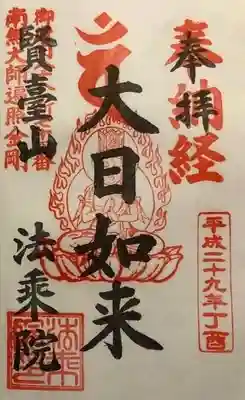 奉拝
奉納経
平成二十九年丁酉
大日如来
賢臺山
法乗院
南無大師遍照金剛